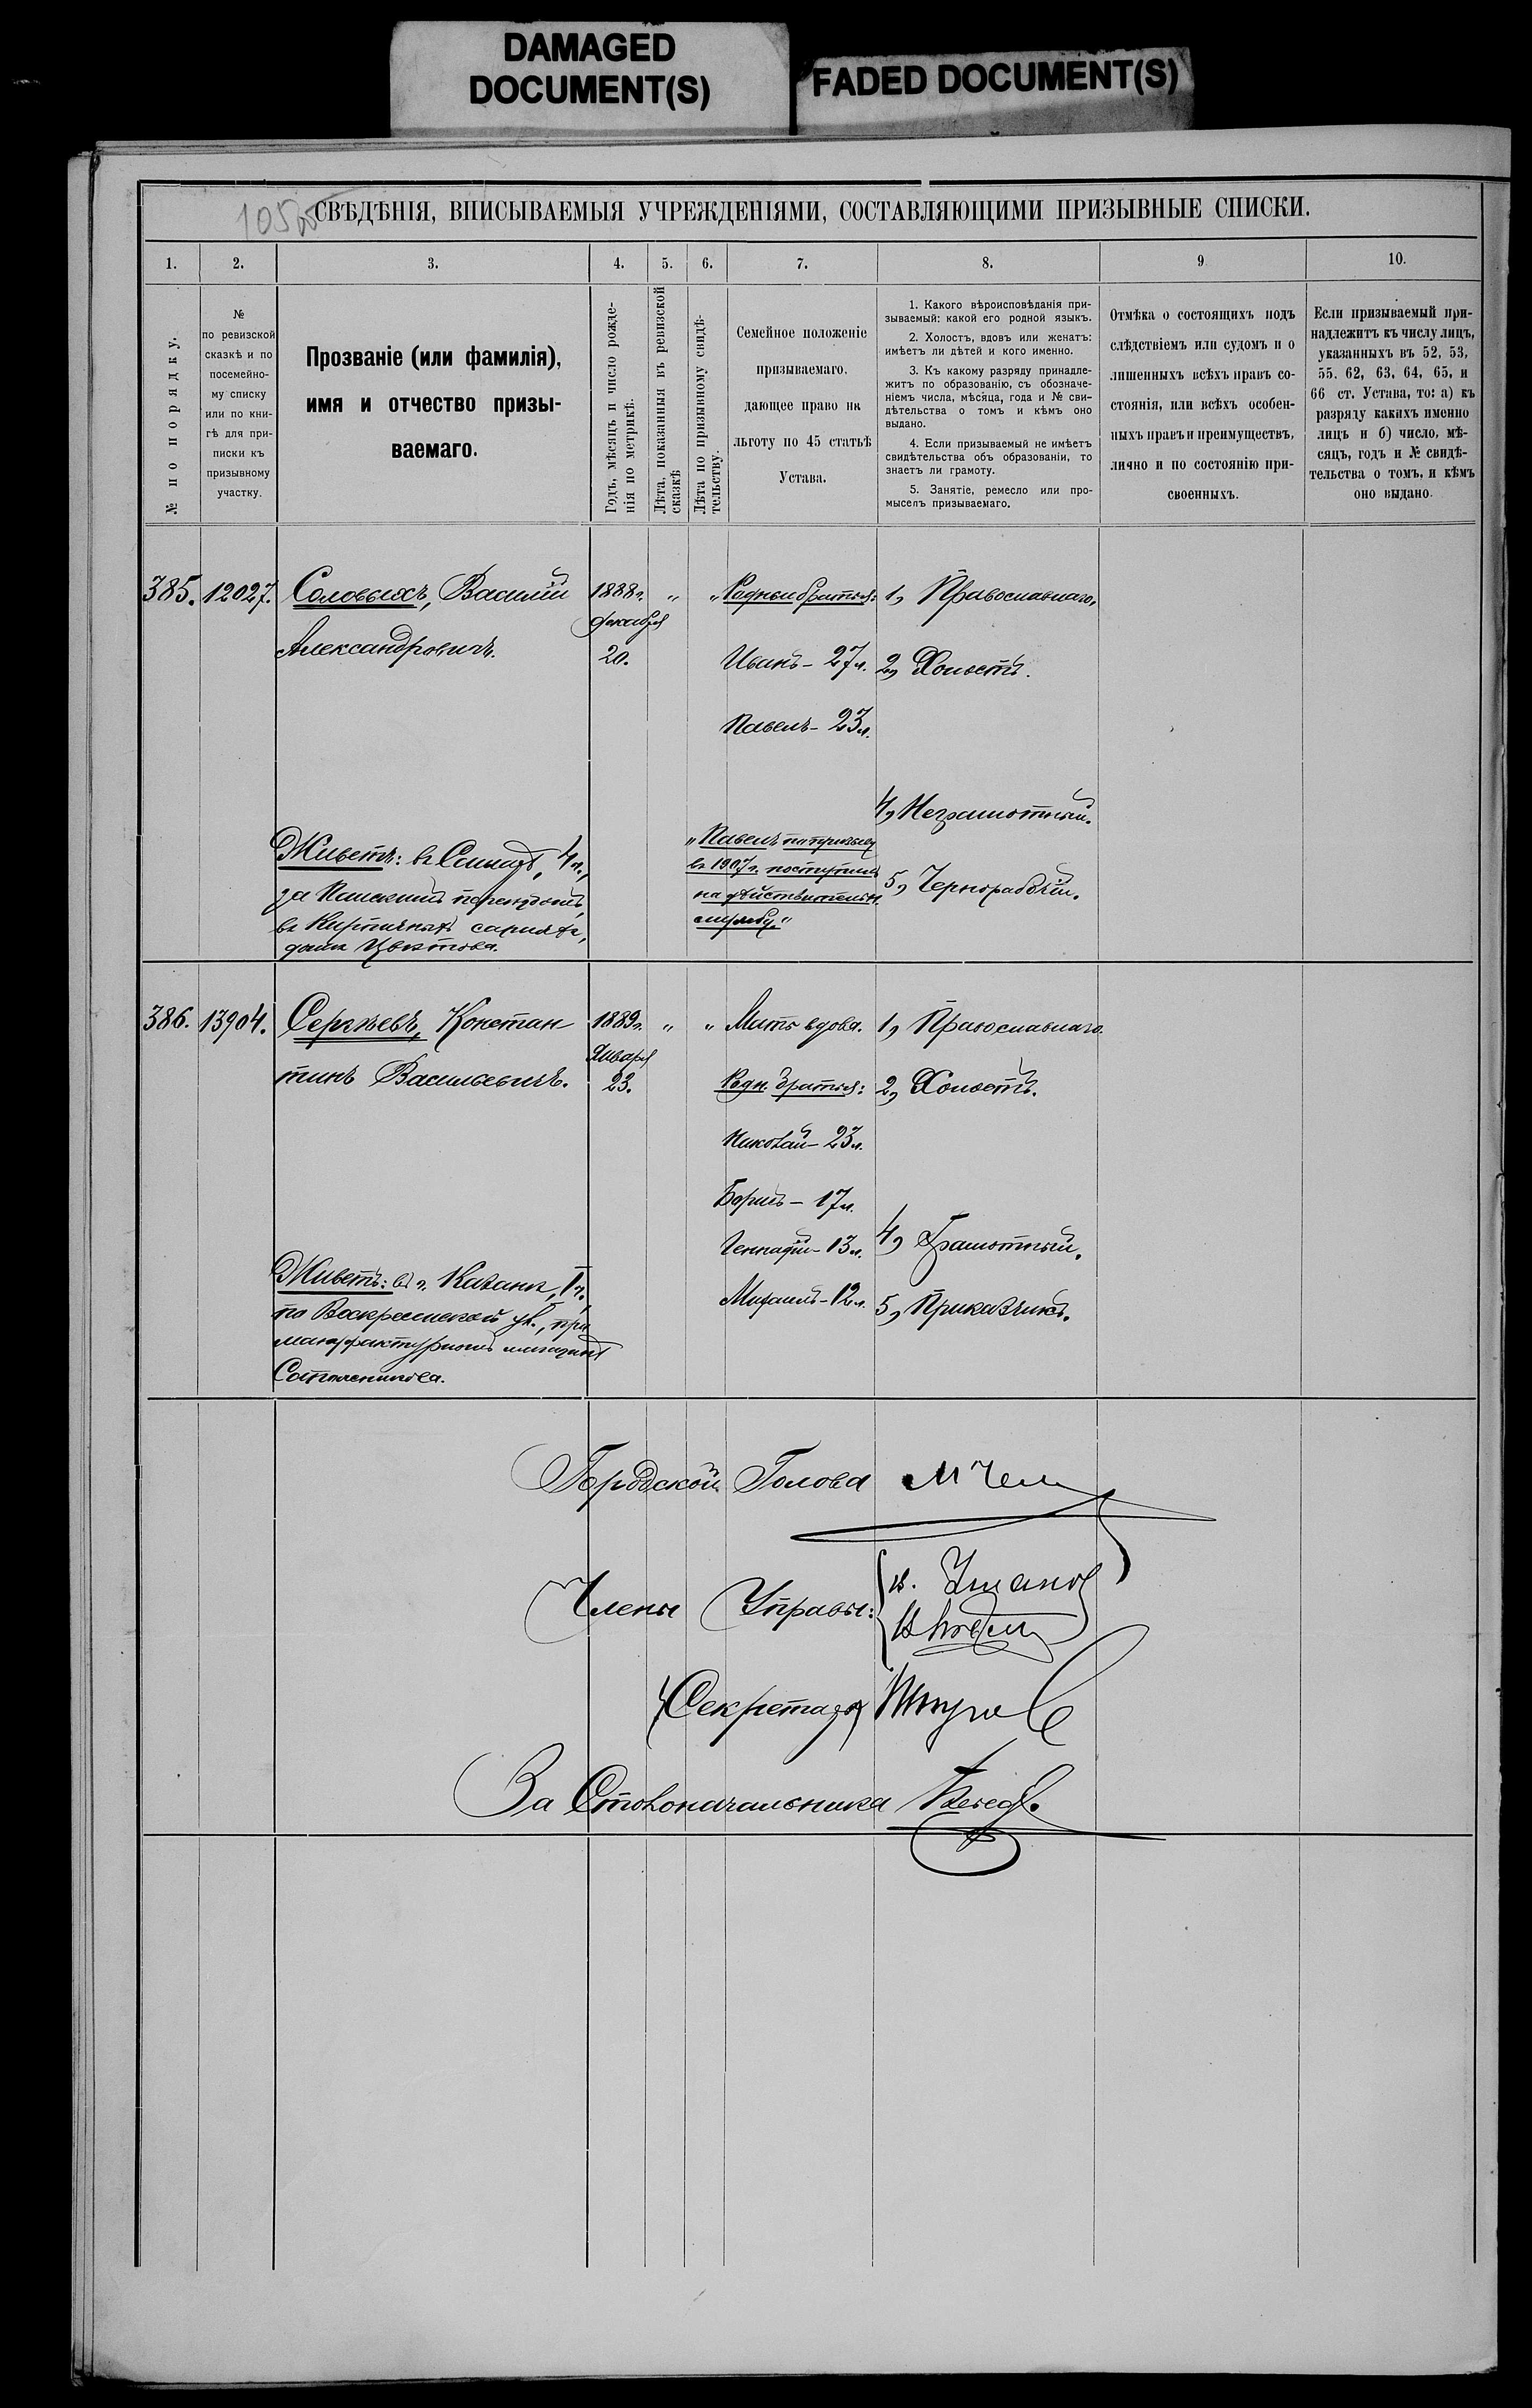 DAMAGED
DOCUMENT(S)
FADED DOCUMENT(S)
СВѢДѢНІЯ, ВПИСЫВАЕМЫЯ УЧРЕЖДЕНІЯМИ, СОСТАВЛЯЮЩИМИ ПРИЗЫВНЫЕ СПИСКИ.
1.
2.
3.
4.
5.
6.
7.
8.
9
10.
№ по порядку.
№
по ревизской
сказкѣ и по
посемейно-
му списку
или по кни-
гѣ для при-
писки къ
призывному
участку.
Прозваніе (или фамилія),
имя и отчество призы-
ваемаго.
Годъ, мѣсяцъ и число рожде-
нія по метрикѣ.
Лѣта, показанныя въ ревизской
сказкѣ
Лѣта по призывному свидѣ-
тельству.
Семейное положеніе
призываемаго,
дающее право на
льготу по 45 статьѣ
Устава.
1. Какого вѣроисповѣданія при-
зываемый: какой его родной языкъ.
2. Холостъ, вдовъ или женатъ:
имѣетъ ли дѣтей и кого именно.
3. Къ какому разряду принадле-
житъ по образованію, съ обозначе-
ніемъ числа, мѣсяца, года и № сви-
дѣтельства о томъ и кѣмъ оно
выдано.
4. Если призываемый не имѣетъ
свидѣтельства объ образованіи, то
знаетъ ли грамоту.
5. Занятіе, ремесло или про-
мыселъ призываемаго.
Отмѣка о состоящихъ подъ
слѣдствіемъ или судомъ и о
лишенныхъ всѣхъ правъ со-
стоянія, или всѣхъ особен-
ныхъ правъ и преимуществъ,
лично и по состоянію при-
своенныхъ.
Если призываемый при-
надлежитъ къ числу лицъ,
указанныхъ въ 52, 53,
55, 62, 63, 64, 65, и
66 ст. Устава, то: а) къ
разряду какихъ именно
лицъ и б) число, мѣ-
сяцъ, годъ и № свидѣ-
тельства о томъ, и кѣмъ
оно выдано.
385. 12027. Соловыхъ, Василій
Александровичъ.
1888 г.
декабря
20.
" "
Родные братья:
Иванъ – 27 л.
Павелъ – 23 л.
1, Православнаго,
2, Холостъ.
4, Неграмотный.
5, Чернорабочій.
Живетъ: въ 4 ч.,
за
въ Кирпичныхъ сараяхъ,
домъ Цвѣткова.
"Павелъ по призыву
въ 1907 г. поступилъ
на дѣйствительн.
службу."
386. 13904. Сергѣевъ, Констан
тинъ Васильевичъ.
1889 г.
Января
23.
" "
Мать вдова.
Родн. братья:
Николай – 23 л.
Борисъ – 17 л.
Геннадій – 13 л.
Михаилъ – 12 л.
1, Православнаго
2, Холостъ.
4, Грамотный.
5, Приказчикъ.
Живетъ: въ г. Казани, I ч.,
по Воскресенской ул., при
мануфактурномъ магазинѣ
Городской Голова
Члены Управы:
Секретарь
За Столоначальника